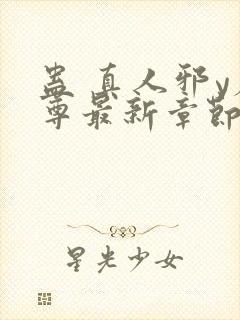 蛊 真人邪y
尊最新章节
星光少女